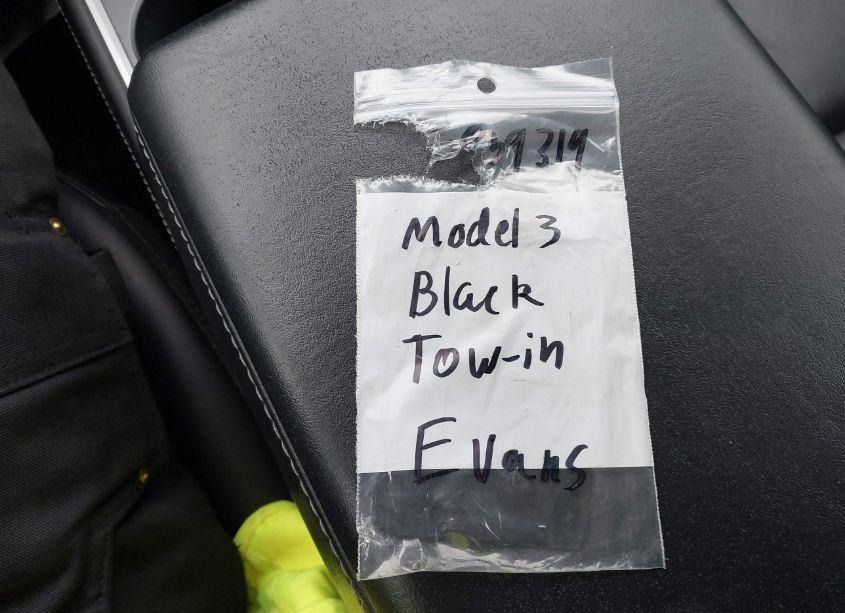 939319
Model 3
Black
Tow-in
Evans